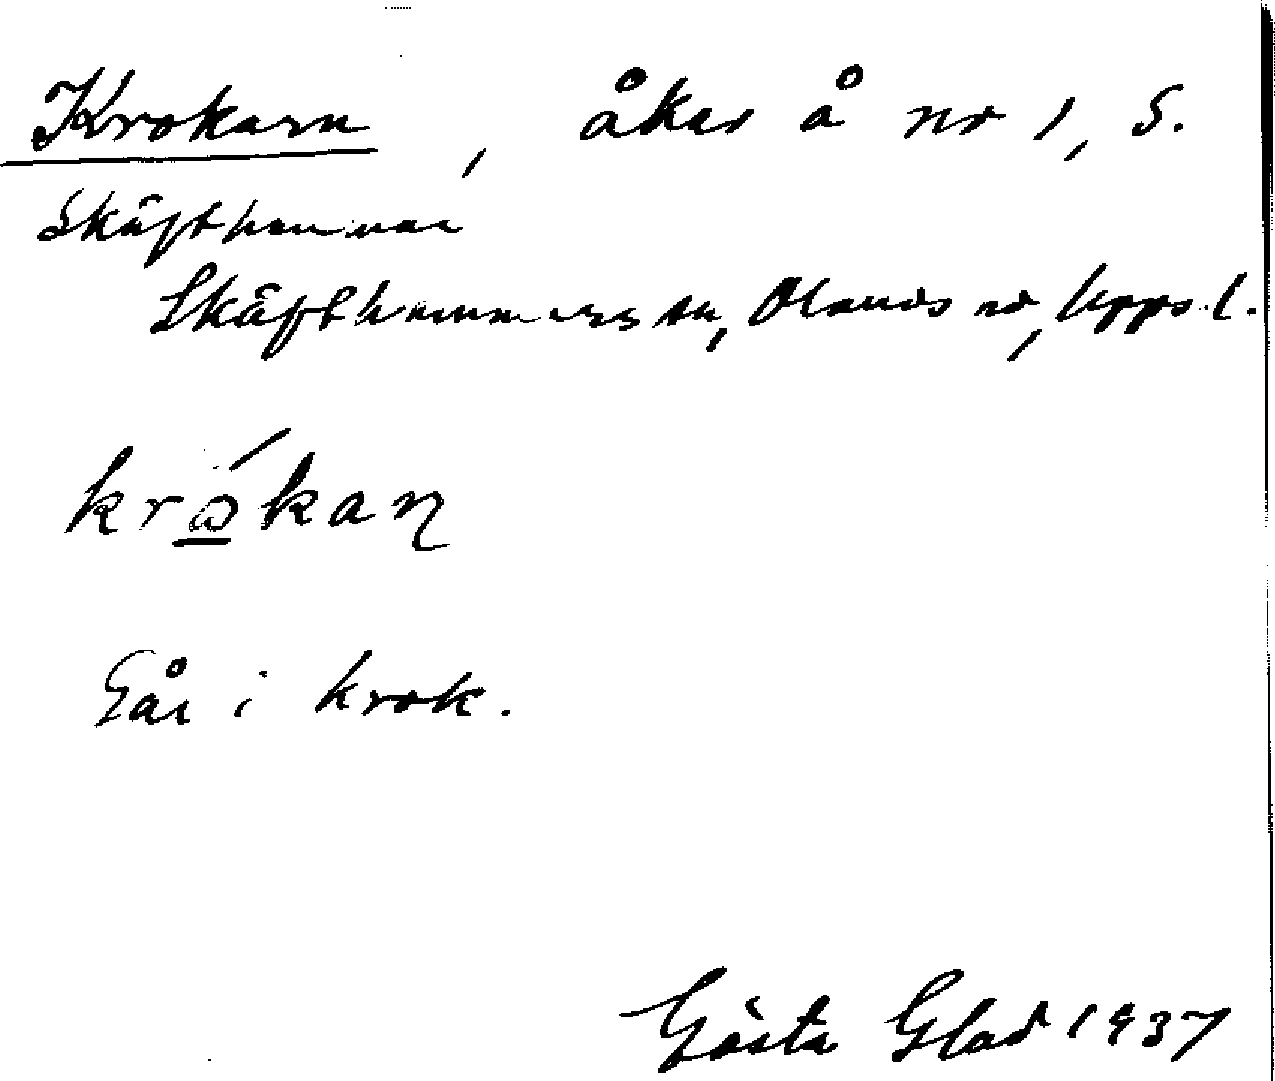 Krokarn, åker å nr 1, S.
Skäfthammar
Skäfthammars sn, Olands hd, Upps. l.
krókaɳ
Går i krok.
Gösta Glad 1937